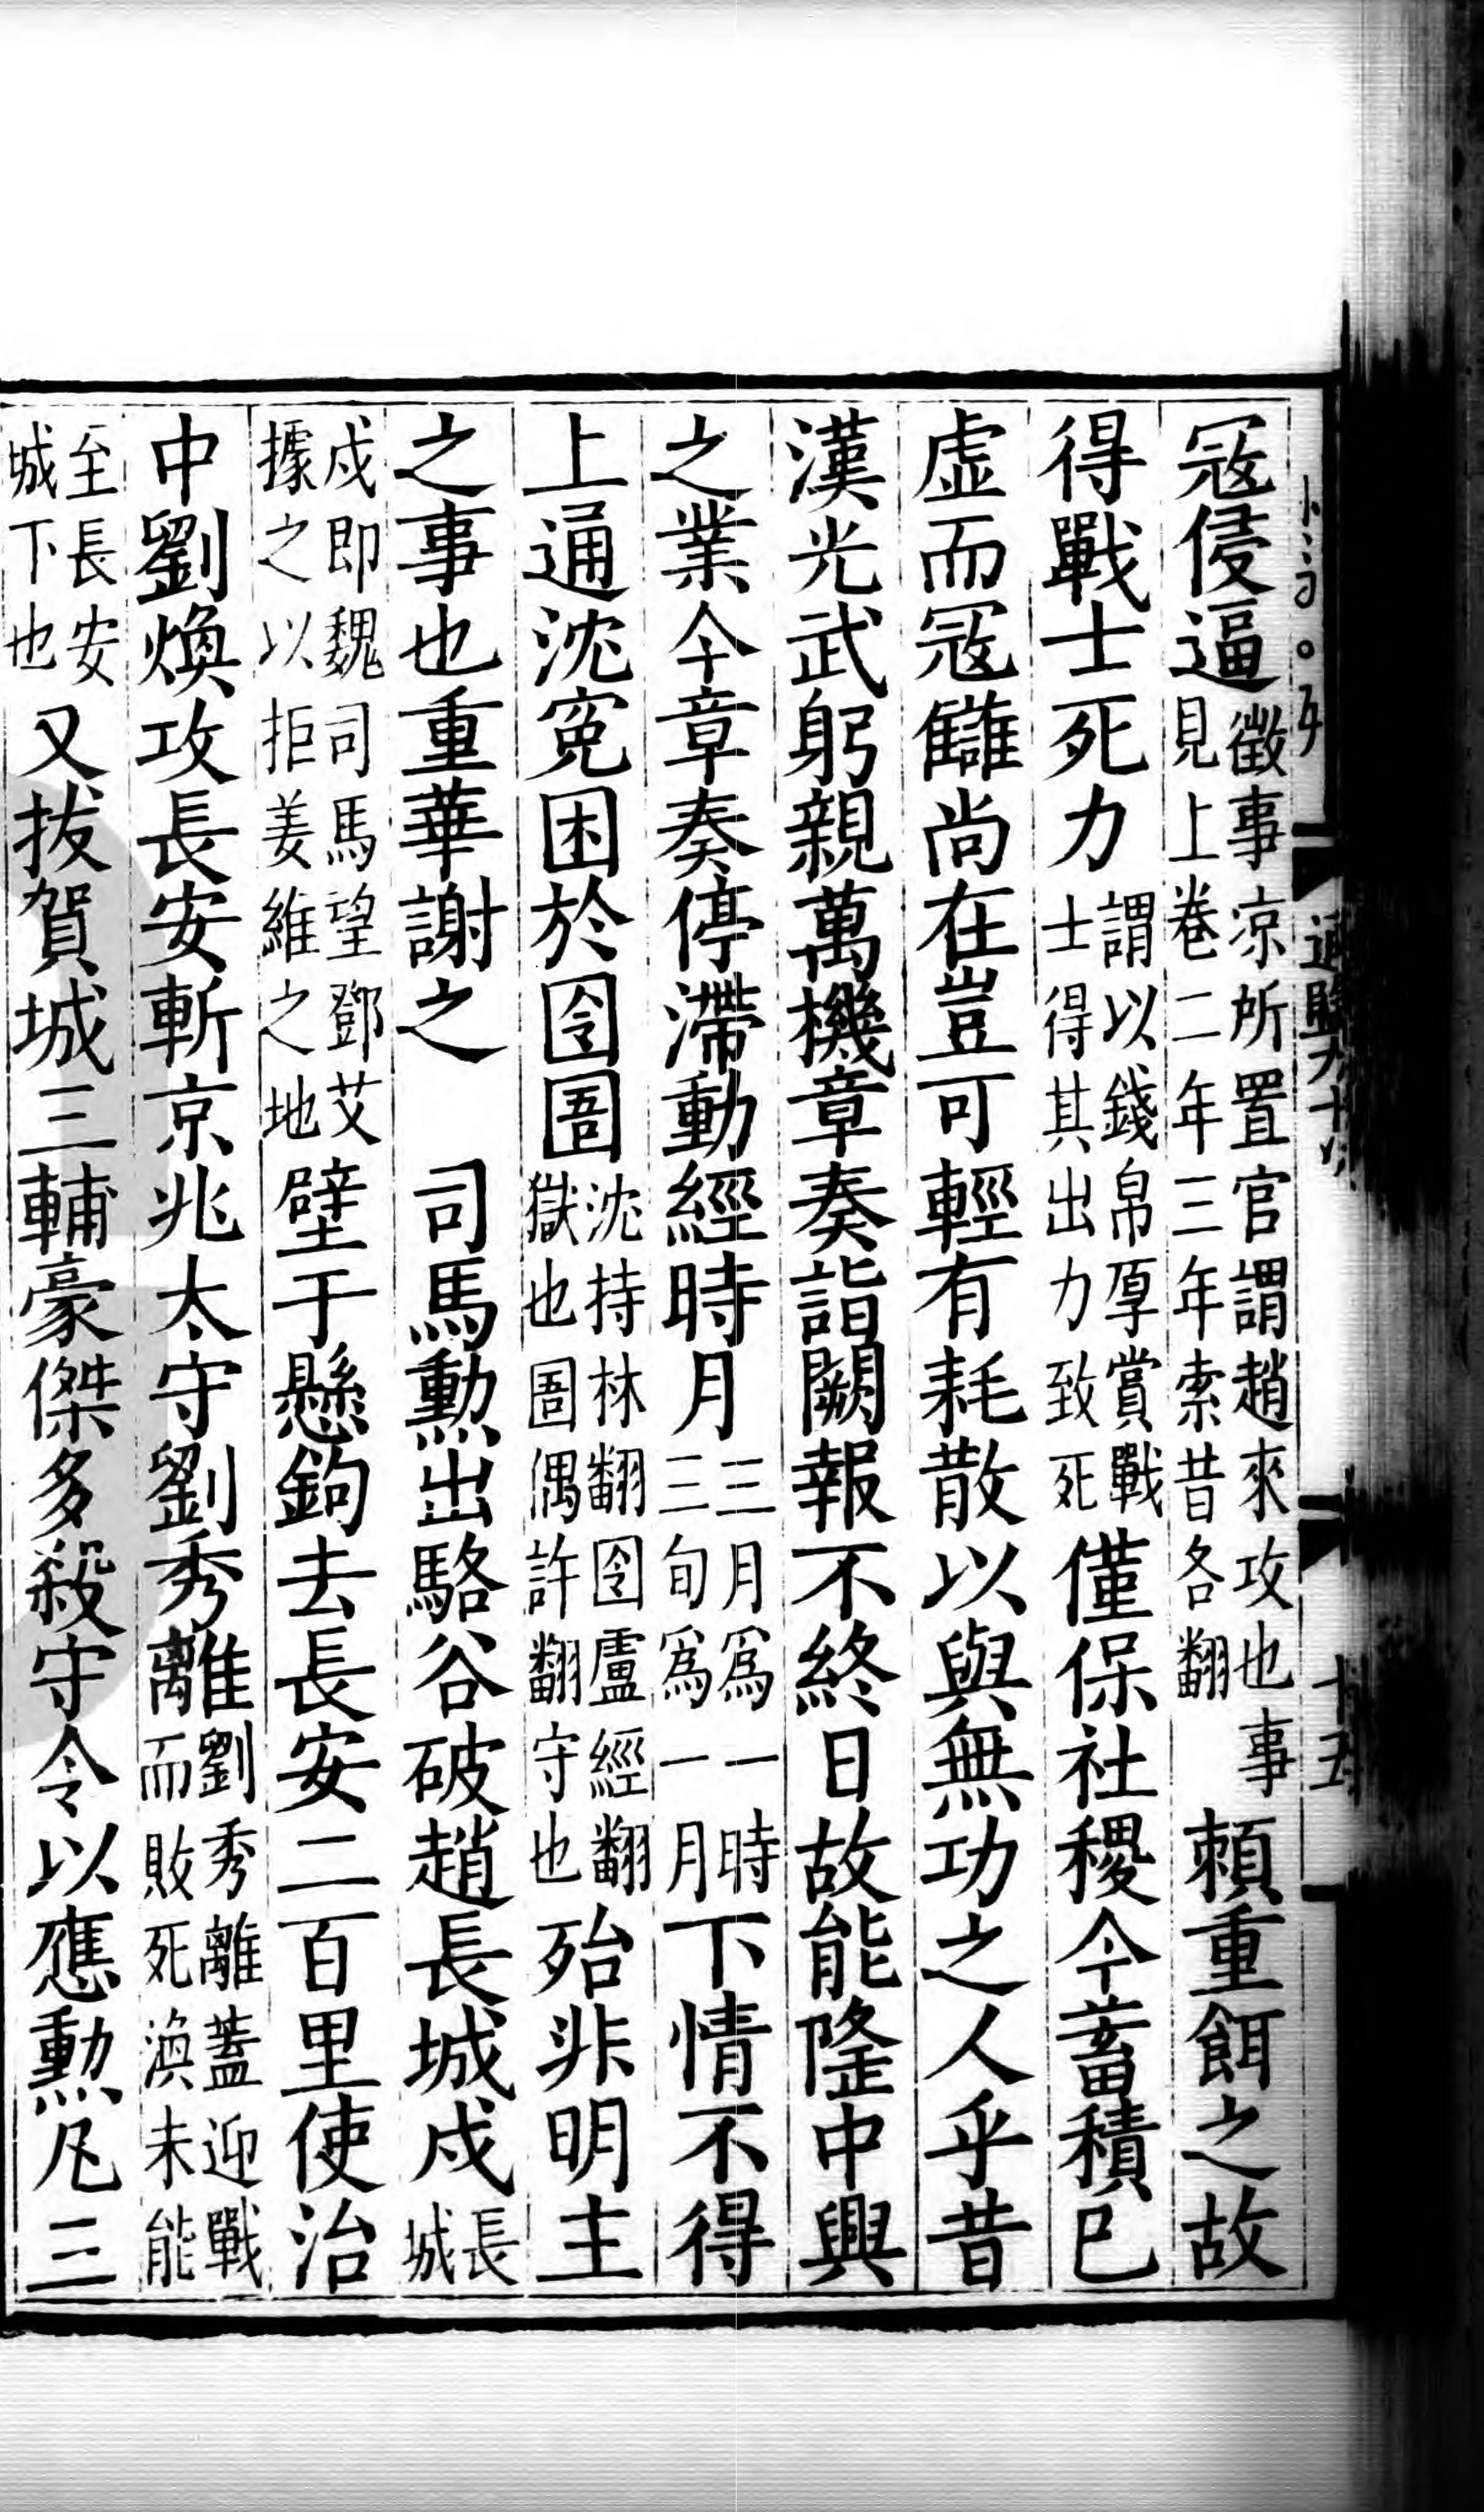 寇侵逼徵事涼所置官謂趙來攻也事見上卷二年三年索昔各翻頼重餌之故
得戰士死力謂以錢帛厚賞戰士得其出力致死僅保社稷今蓄積已
虛而寇讎尚在豈可輕有耗散以與無功之人乎昔
漢光武躬親萬機章奏詣闕報不終日故能隆中興
之業今章奏停滯動經時月三月爲一時三旬爲一月下情不得
上通沈寃困於囹圄沈持林翻囹盧經翻獄也圄偶許翻守也殆非明主
之事也重華謝之　司馬勲出駱谷破趙長城戍長城
戍即魏司馬望鄧艾據之以拒姜維之地壁于懸鉤去長安二百里使治
中劉煥攻長安斬京兆太守劉秀離劉秀離蓋迎戰而敗死渙未能
至長安城下也又拔賀城三輔豪傑多殺守令以應勲凡三
通鑑九十八
十五